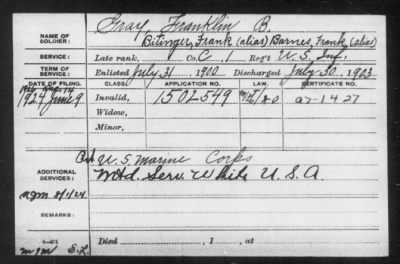 Gray, Franklin B.
NAME OF SOLDIER: Bitinger, Frank (alias) Barnes, Frank (alias)
SERVICE: Late rank, Co. C, 1 Reg't U.S. Inf.
TERM OF SERVICE: Enlisted July 31 1900 Discharged July 30, 1903
DATE OF FILING. CLASS. APPLICATION NO. CERTIFICATE NO.
1924 June 9 Invalid, 1502549 a7-14 27
Widow,
Minor,
U.S. Marine Corps
ADDITIONAL SERVICES: Serv. White U.S.A.
mgm 8/1/24
REMARKS:
Died , 1 , at
mgm